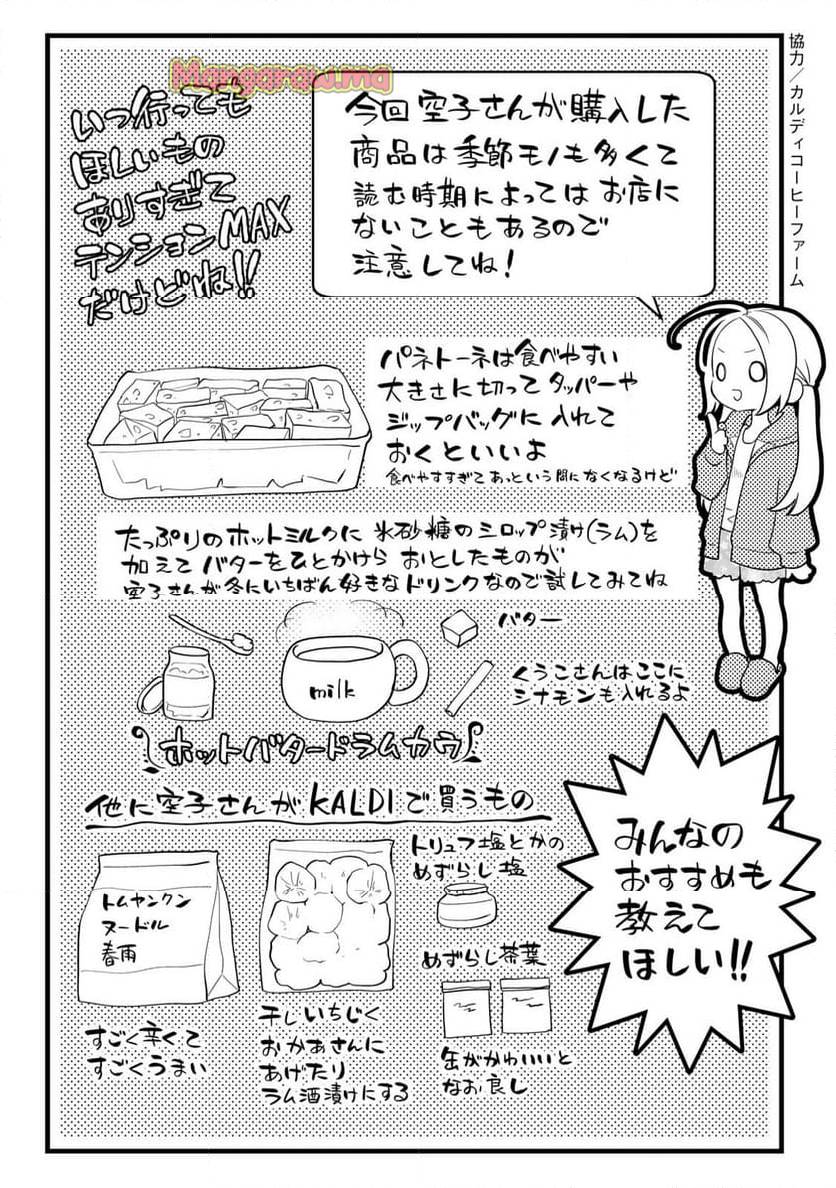 協力／カルディコーヒーファーム
Mangaraw.ma
今回空子さんが購入した
商品は季節モノも多くて
読む時期によってはお店に
ないこともあるので
注意してね！
いつ行っても
ほしいもの
ありすぎて
テンションMAX
だけどね!!
パネトーネは食べやすい
大きさに切ってタッパーや
ジップバッグに入れて
おくといいよ
食べやすすぎてあっという間になくなるけど
たっぷりのホットミルクに氷砂糖のシロップ漬け(ラム)を
加えてバターをひとかけら おとしたものが
空子さんが冬にいちばん好きなドリンクなので試してみてね
バター
milk
くうこさんはここに
シナモンも入れるよ
ホットバタードラムカウ
他に空子さんがKALDIで買うもの
トムヤンクン
ヌードル
春雨
すごく辛くて
すごくうまい
干しいちじく
おかあさんに
あげたり
ラム酒漬けにする
トリュフ塩とかの
めずらし塩
めずらし茶葉
缶がかわいいと
なお良し
みんなの
おすすめも
教えて
ほしい!!